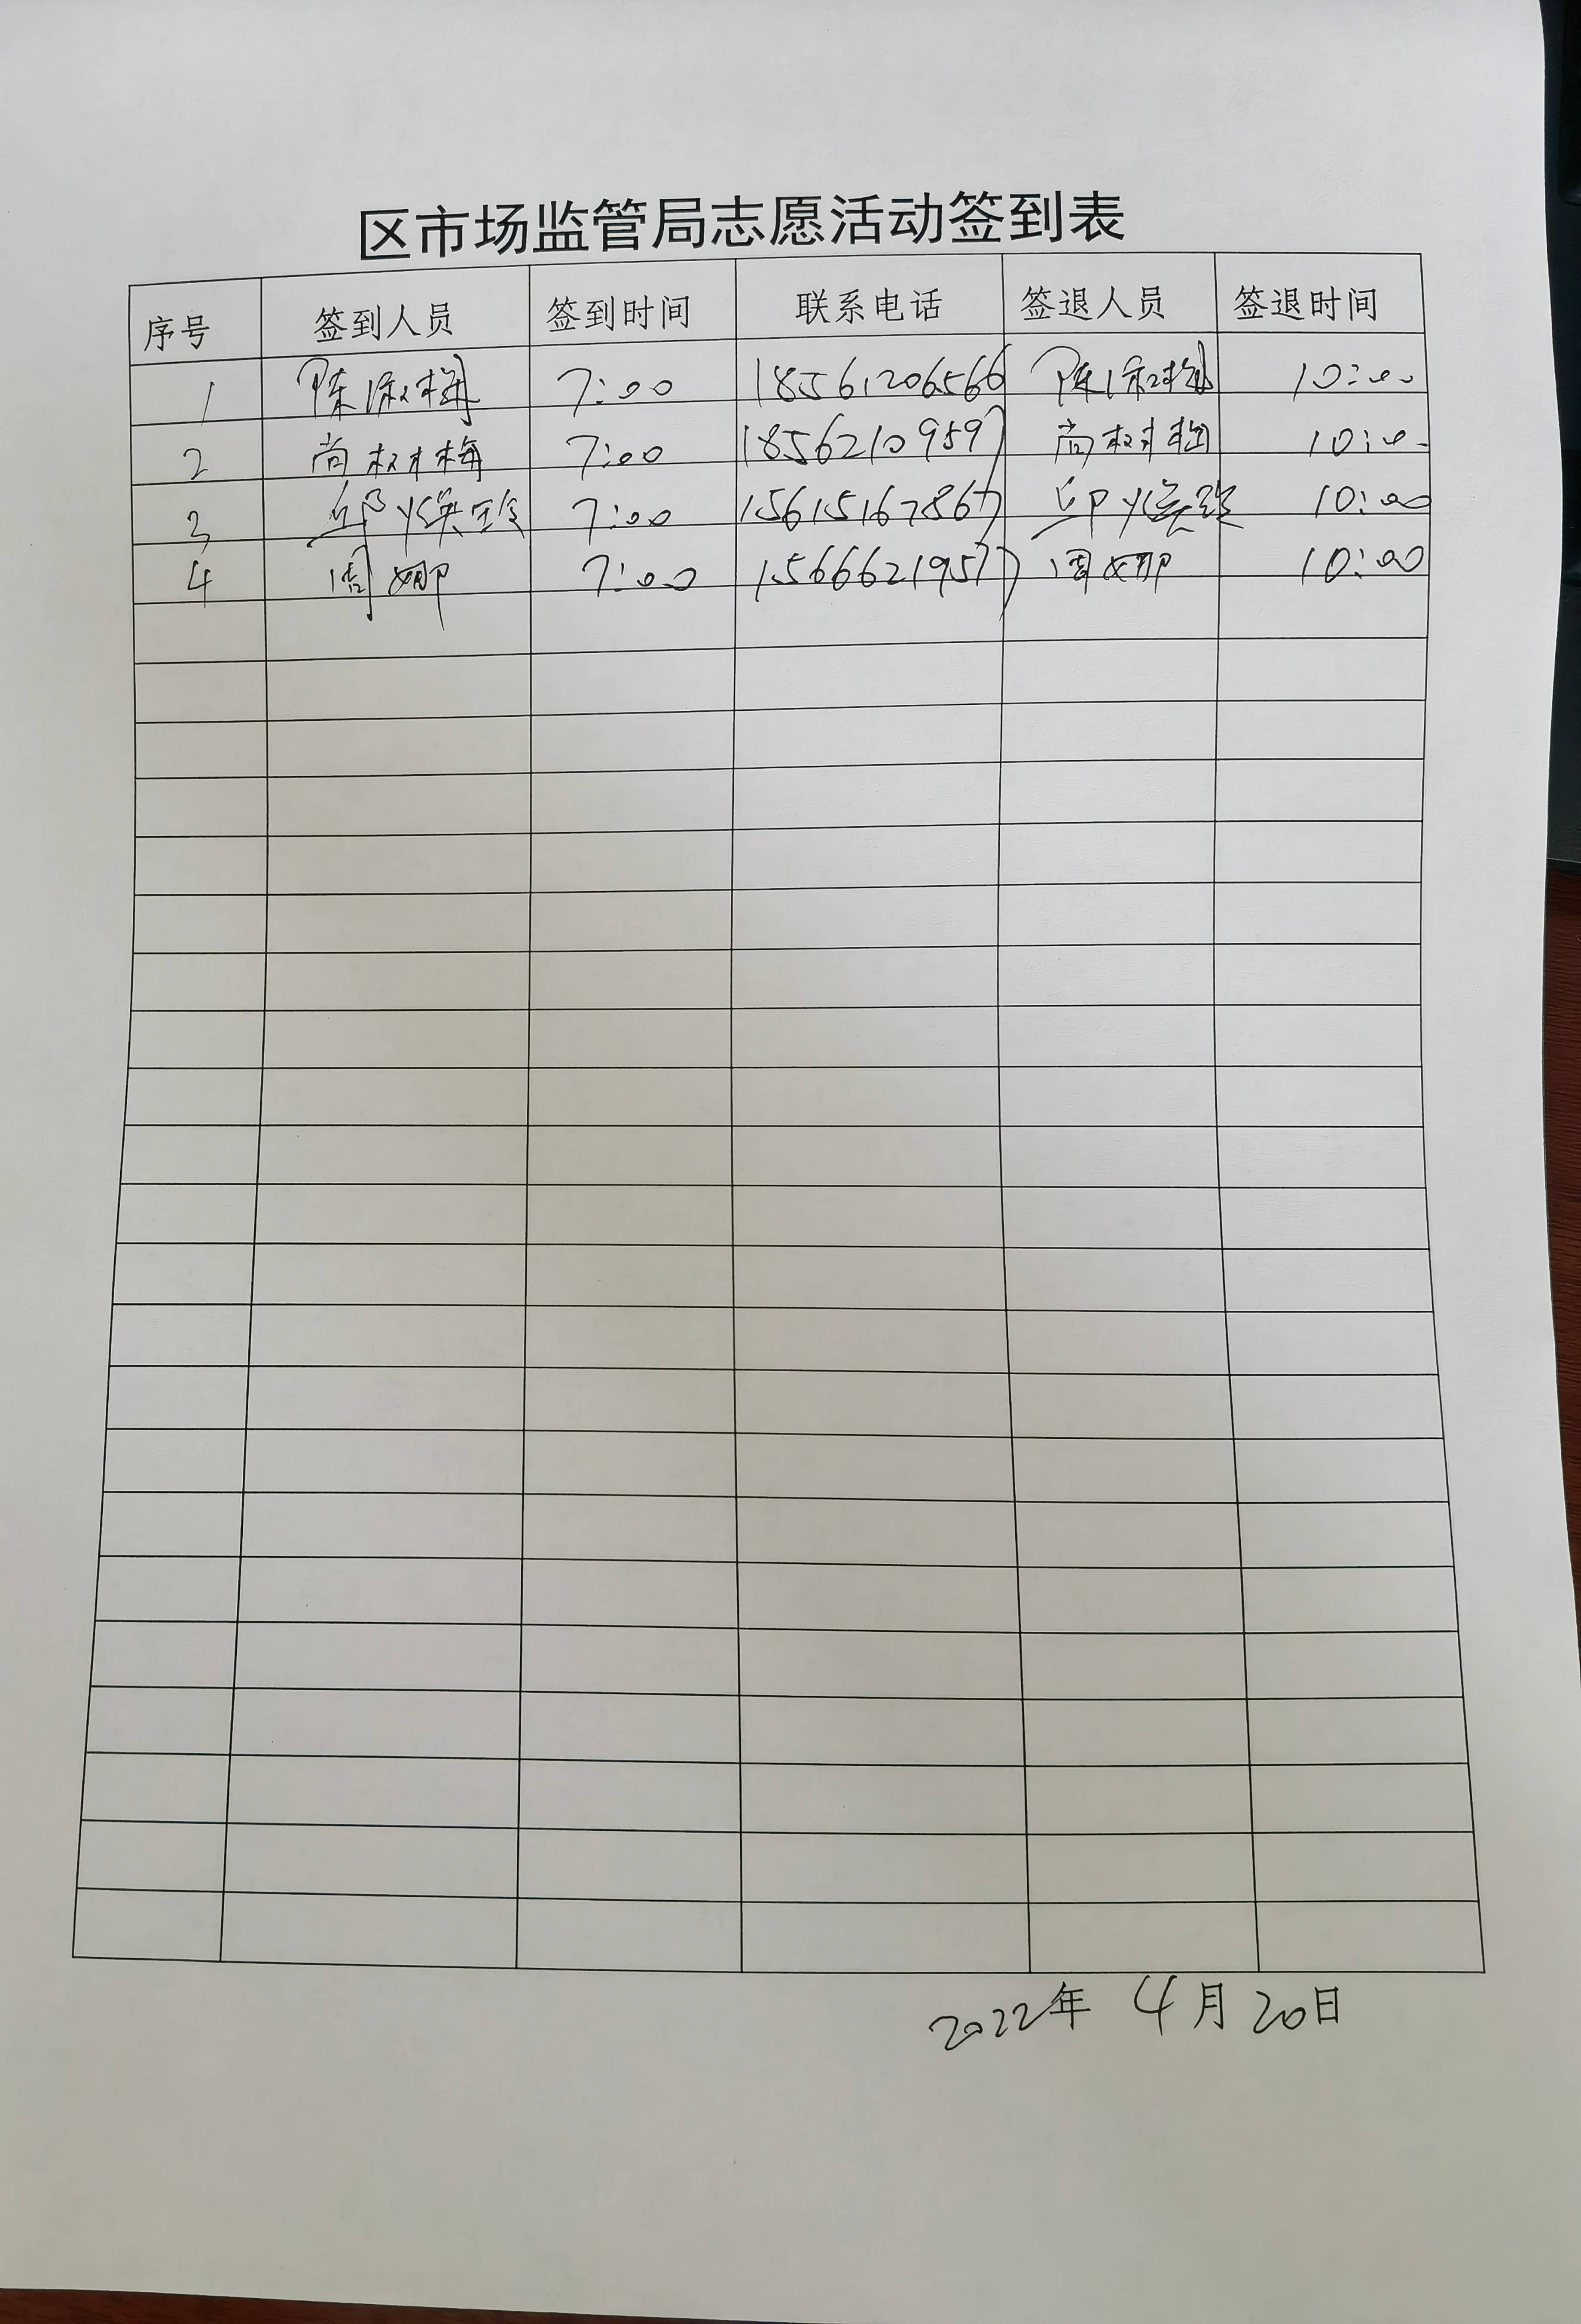 区市场监管局志愿活动签到表
序号 签到人员 签到时间 联系电话 签退人员 签退时间
1 陈淑梅 7:00 18561206566 陈淑梅 10:00
2 尚树梅 7:00 18562109597 尚树梅 10:00
3 邱焕玲 7:00 15615167867 邱焕玲 10:00
4 周娜 7:00 15666219577 周娜 10:00
2022年 4月20日